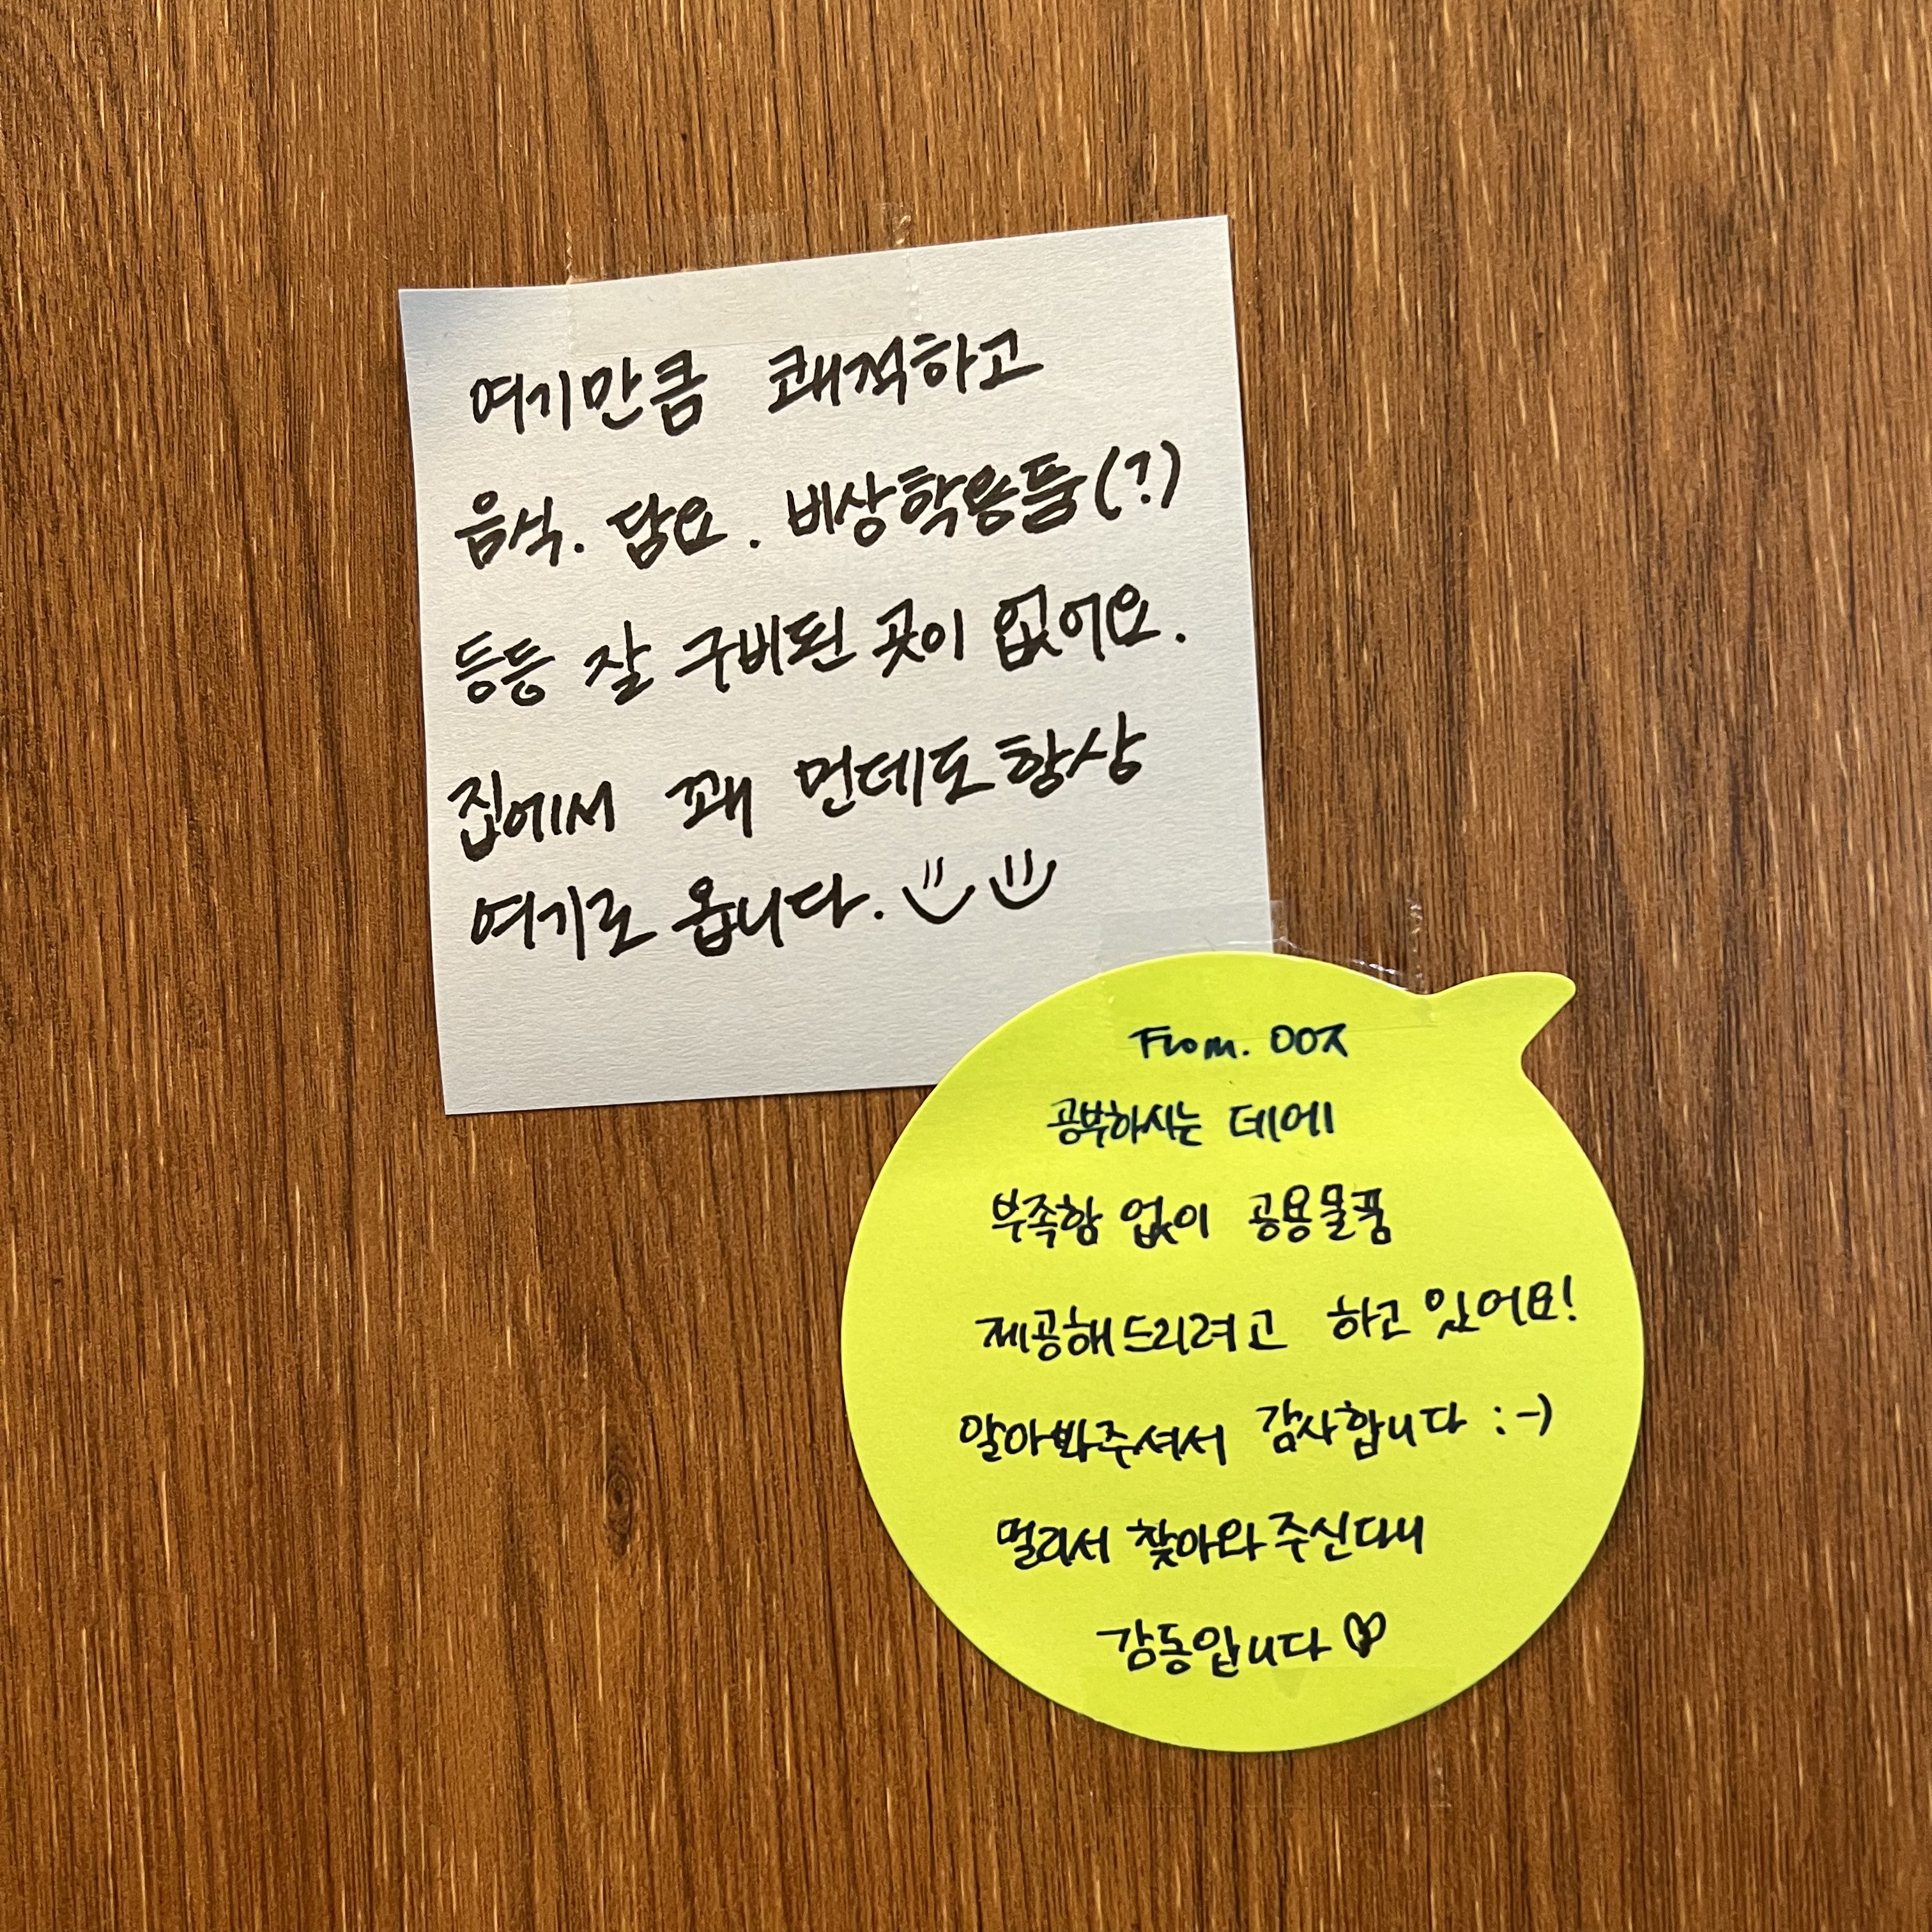 여기만큼 쾌적하고
음식. 담요. 비상학용품(?)
등등 잘 구비된 곳이 없어요.
집에서 꽤 먼데도 항상
여기로 옵니다.
From. 00ㅈ
공부하시는 데에
부족함 없이 공용물품
제공해드리려고 하고 있어요!
알아봐주셔서 감사합니다 :-)
멀리서 찾아와주신다니
감동입니다♡